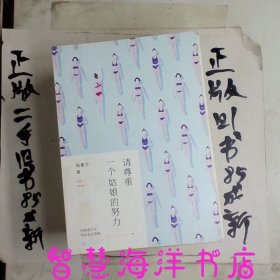 正版二手旧书85成新
请尊重
一个姑娘的努力
杨熹文
著
正版旧书85成新
智慧海洋书店